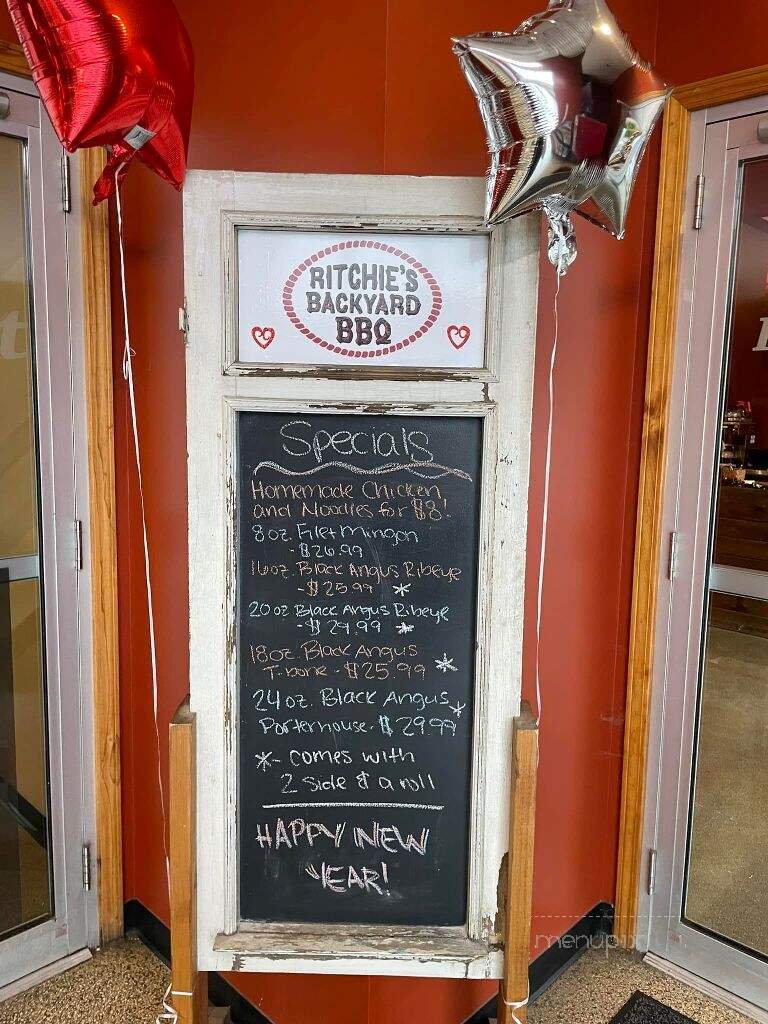 RITCHIE'S
BACKYARD
BBQ
Specials
Homemade Chicken
and Noodles for $8!
8oz. Filet Mingon
- $26.99
16oz. Black Angus Ribeye
- $25.99 *
20oz Black Angus Ribeye
- $29.99 *
18oz. Black Angus
T-bone - $25.99 *
24oz. Black Angus *
Porterhouse - $29.99
*- comes with
2 side & a roll
HAPPY NEW
YEAR!
menupix